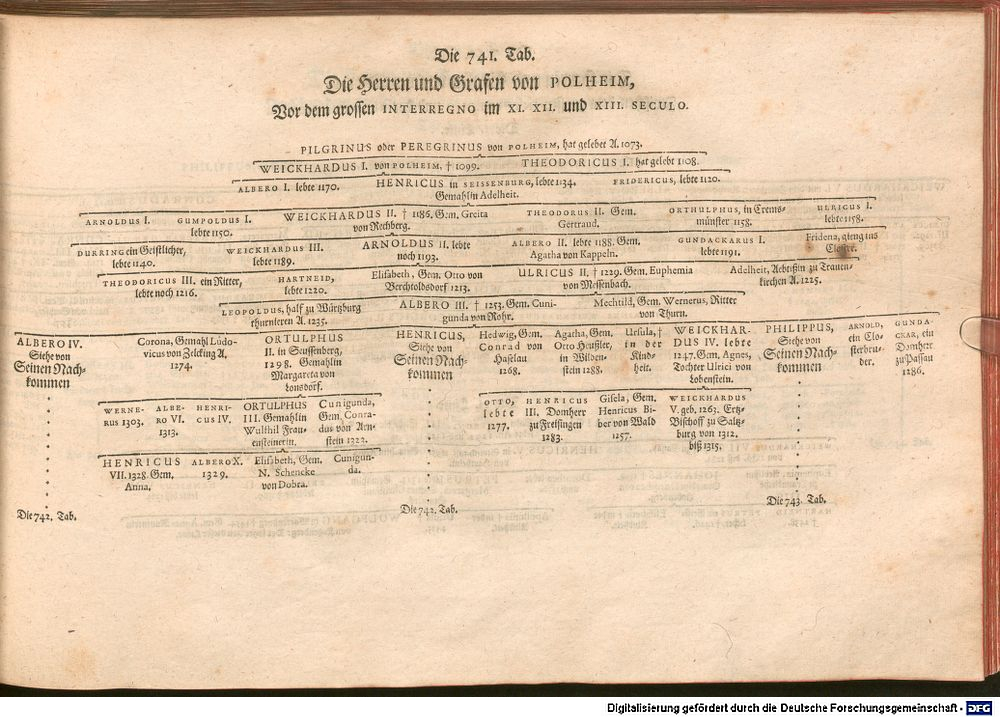 Die 741. Tab.
Die Herren und Grafen von POLHEIM,
Vor dem grossen INTERREGNO im XI. XII. und XIII. SECULO.
PILGRINUS oder PEREGRINUS von POLHEIM, hat gelebet A. 1073.
WEICKHARDUS I. von POLHEIM, † 1099. THEODORICUS I. hat gelebt 1108.
ALBERO I. lebte 1170.
HENRICUS in SEISSENBURG, lebte 1134.
Gemahlin Adelheit.
FRIDERICUS, lebte 1120.
ARNOLDUS I.
GUMPOLDUS I.
lebte 1150.
WEICKHARDUS II. † 1186. Gem. Greita
von Rechberg.
THEODORUS II. Gem.
Gertraud.
ORTHULPHUS, in Crems-
münster 1158.
ULRICUS I.
lebte 1158.
DURRING ein Geistlicher,
lebte 1140.
WEICKHARDUS III.
lebte 1189.
ARNOLDUS II. lebte
noch 1193.
ALBERO II. lebte 1188. Gem.
Agatha von Kappeln.
GUNDACKARUS I.
lebte 1191.
Fridena, gieng ins
Closter.
THEODORICUS III. ein Ritter,
lebte noch 1216.
HARTNEID,
lebte 1220.
Elisabeth, Gem. Otto von
Berchtoldsdorf 1213.
ULRICUS II. † 1229. Gem. Euphemia
von Messenbach.
Adelheit, Aebtißin zu Trauen-
kirchen A. 1225.
LEOPOLDUS, half zu Würtzburg
thurnieren A. 1235.
ALBERO III. † 1253. Gem. Cuni-
gunda von Rohr.
Mechtild, Gem. Wernerus, Ritter
von Thurn.
ALBERO IV.
Siehe von
Seinen Nach-
kommen
Corona, Gemahl Ludo-
vicus von Zelcking A.
1274.
ORTULPHUS
II. in Seussenberg,
1298. Gemahlin
Margareta von
Lonsdorf.
HENRICUS,
Siehe von
Seinen Nach-
kommen
Hedwig, Gem.
Conrad von
Haselau
1268.
Agatha, Gem.
Otto Heußler,
in Wilden-
stein 1288.
Ursula, †
in der
Kind-
heit.
WEICKHAR-
DUS IV. lebte
1247. Gem. Agnes,
Tochter Ulrici von
Lobenstein.
PHILIPPUS,
Siehe von
Seinen Nach-
kommen
ARNOLD,
ein Clo-
sterbru-
der.
GUNDA-
CKAR, ein
Domherr
zu Passau
1286.
WERNE-
RUS 1303.
ALBE-
RO VI.
1313.
HENRI-
CUS IV.
ORTULPHUS
III. Gemahlin
Wulfhil Frau-
ensteinerin.
Cunigunda,
Gem. Conra-
dus von Arn-
stein 1322.
OTTO,
lebte
1277.
HENRICUS
III. Domherr
zu Freisingen
1283.
Gisela, Gem.
Henricus Bi-
ber von Wald
1257.
WEICKHARDUS
V. geb. 1263. Ertz-
Bischoff zu Saltz-
burg von 1312.
biß 1315.
HENRICUS
VII. 1328. Gem.
Anna,
ALBERO X.
1329.
Elisabeth, Gem.
N. Schencke
von Dobra.
Cunigun-
da.
Die 742. Tab.
Die 742. Tab.
Die 743. Tab.
Digitalisierung gefördert durch die Deutsche Forschungsgemeinschaft - DFG